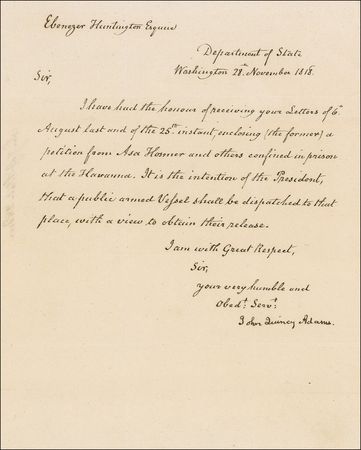 Ebenezer Huntington Esquire
Department of State
Washington 28. November 1818.
Sir,
I have had the honour of receiving your Letters of 6.
August last and of the 25th instant, enclosing (the former) a
petition from Asa Homer and others confined in prison
at the Havanna. It is the intention of the President,
that a public armed Vessel shall be dispatched to that
place, with a view to obtain their release.
I am with Great Respect,
Sir,
your very humble and
Obedt. Servt.
John Quincy Adams.